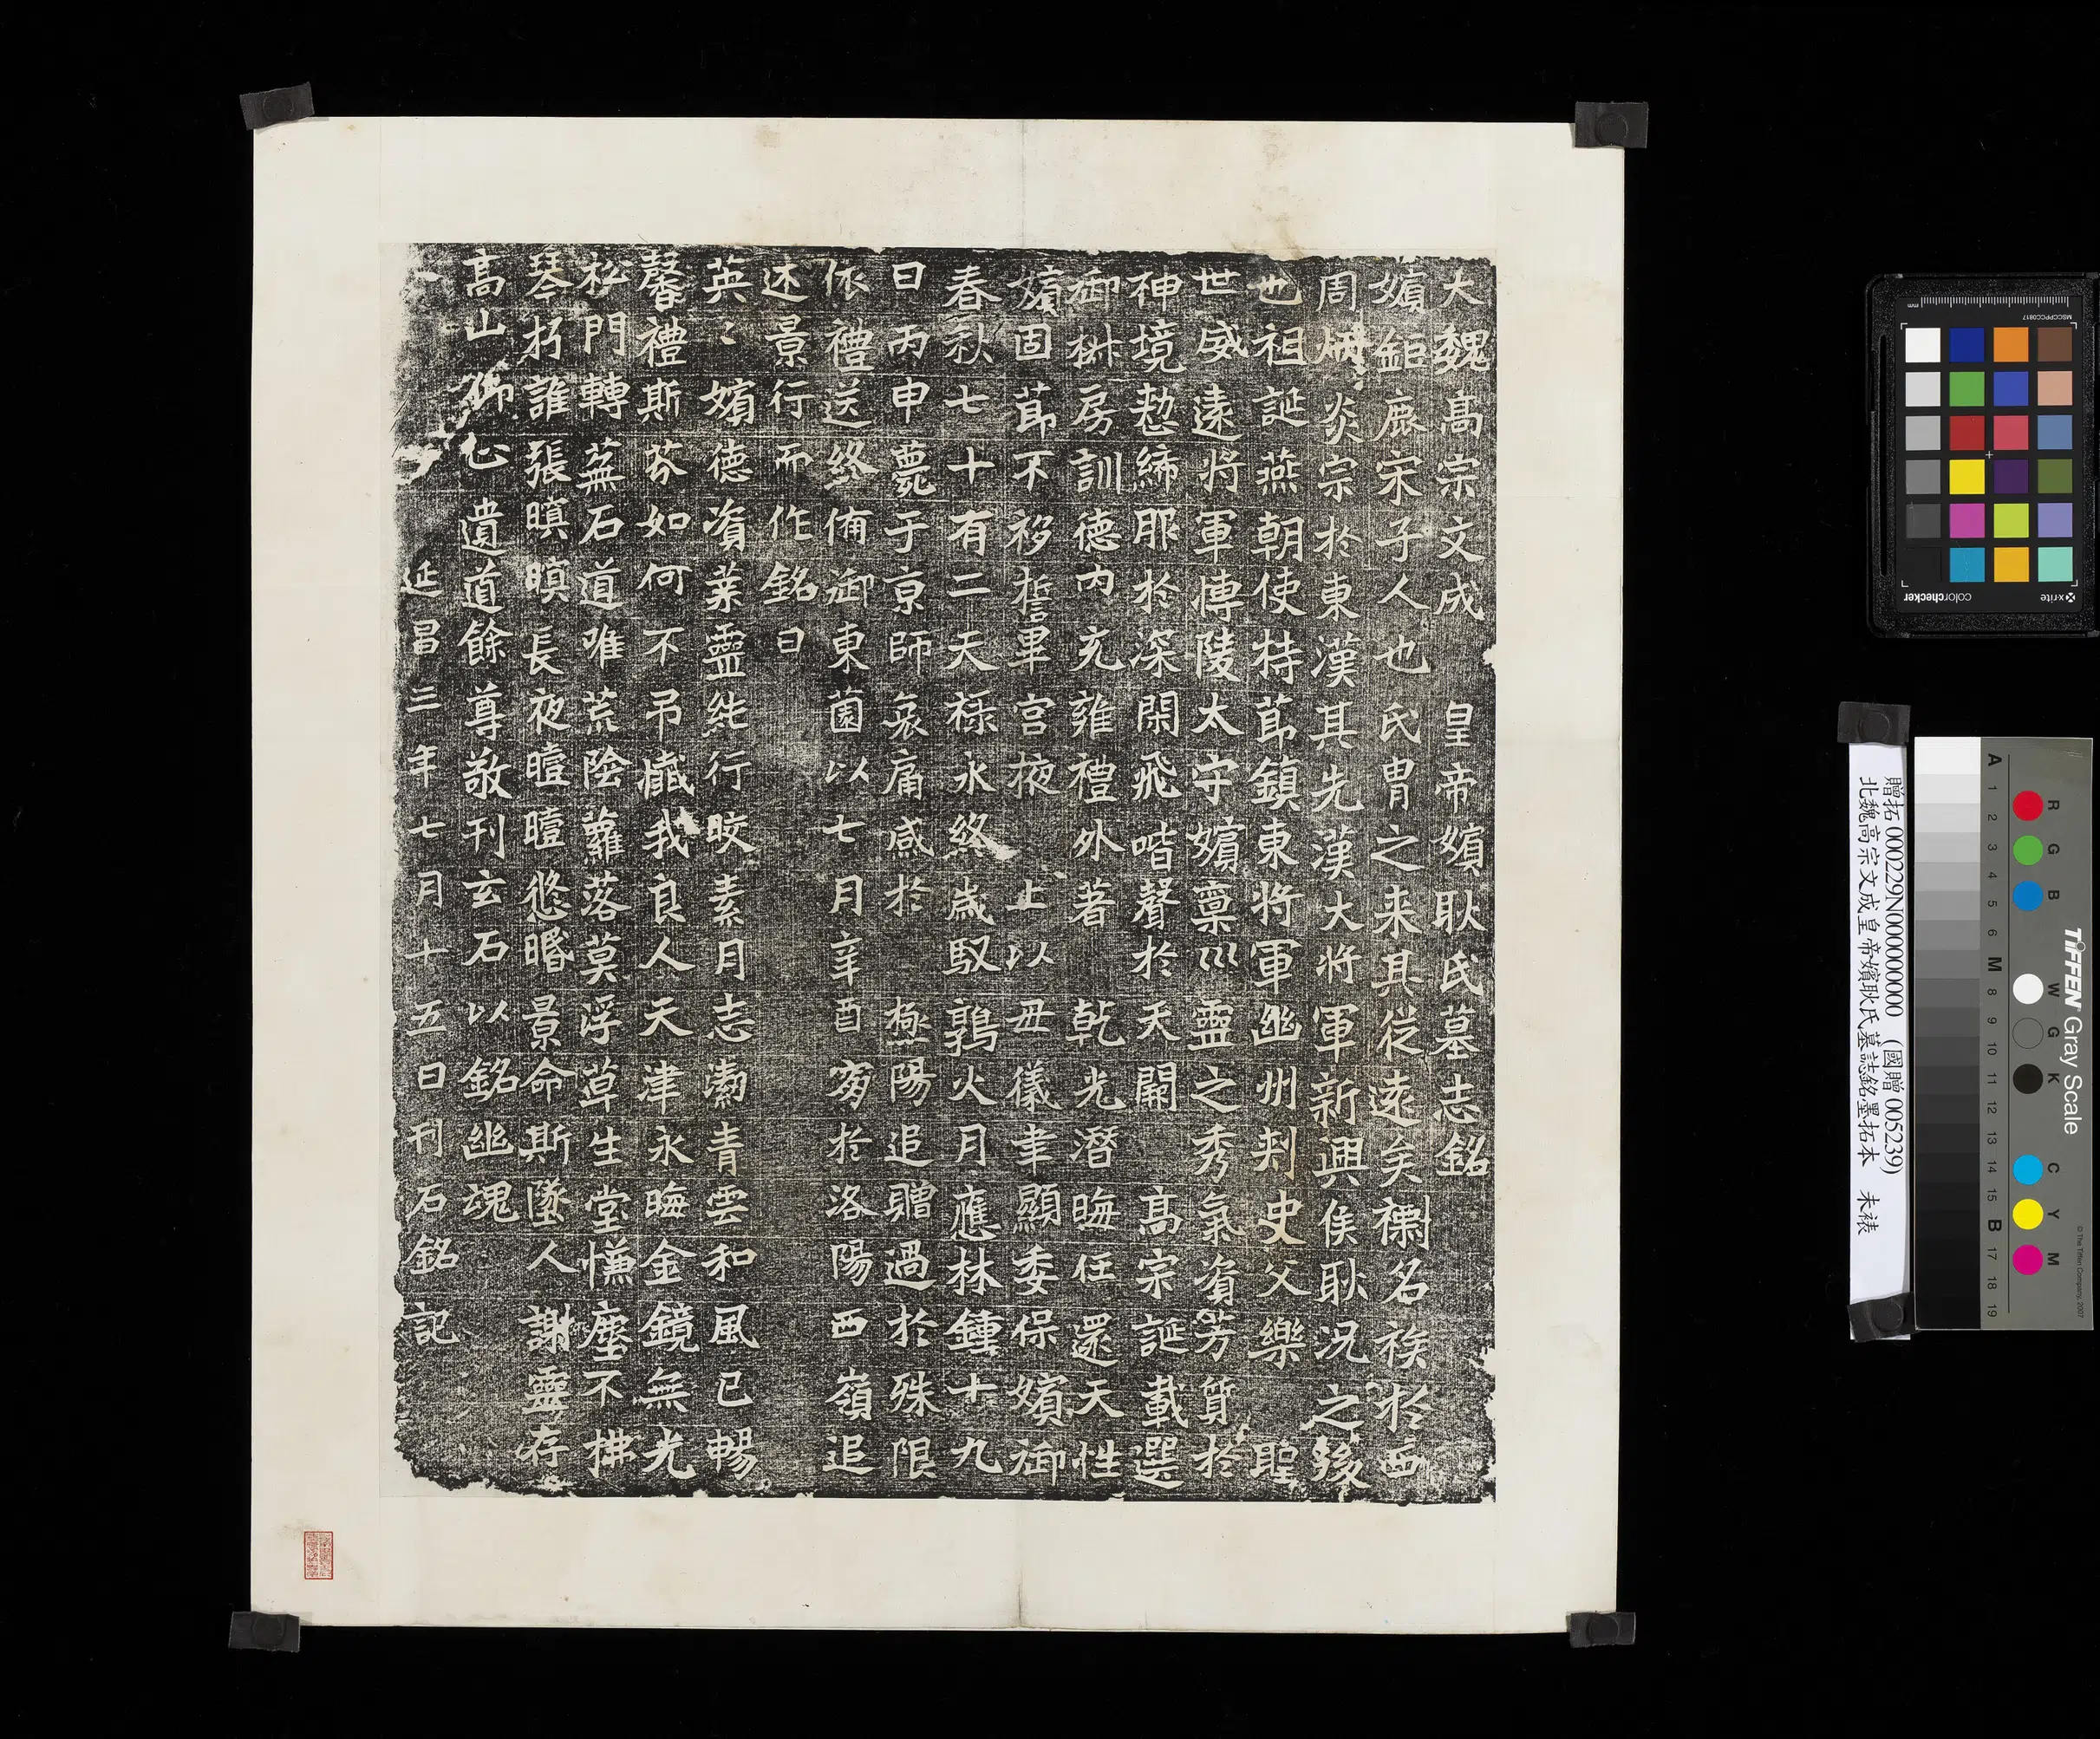 大魏高宗文成　皇帝嬪耿氏墓志銘
嬪鉅鹿宋子人也氏胄之来其從遠矣神名族於西
周炳炎宗於東漢其先漢大將軍新興侯耿况之後
也祖誕燕朝使持莭鎮東將軍幽州刾史父樂　聖
世威遠將軍博陵太守嬪稟巛靈之秀氣資芳質於
神境懃締服於深閑飛喈聲於天闢　高宗誕載選
御椒房訓德内充雍禮外著　乾光潛晦任還天性
嬪固莭不移誓畢宫掖　上以毋儀聿顯委保嬪御
春秋七十有二天禄永終歲馭鶉火月應林鍾十九
日丙申薨于京師哀痛感於　極陽追贈過於殊限
依禮送終備御東薗以七月辛酉窆於洛陽西嶺追
述景行而作銘曰
英〻嬪德資業靈純行皎素月志瀏青雲和風已暢
馨禮斯芬如何不吊殲我良人天津永晦金鏡無光
松門轉蕪石道唯荒陰蘿落莫浮草生堂慊塵不拂
琴杇誰張瞑瞑長夜曀曀愁昏景命斯墜人謝靈存
高山仰止遺道餘尊敬刊玄石以銘幽魂
延昌三年七月十五日刊石銘記
贈拓000229N000000000 (國贈005239)
北魏高宗文成皇帝嬪耿氏墓誌銘墨拓本　未裱
x·rite colorchecker
MSCCPPCC0817
mm
TIFFEN Gray Scale
© The Tiffen Company, 2007
R G B W G K C Y M
A 1 2 3 4 5 6 M 8 9 10 11 12 13 14 15 B 17 18 19